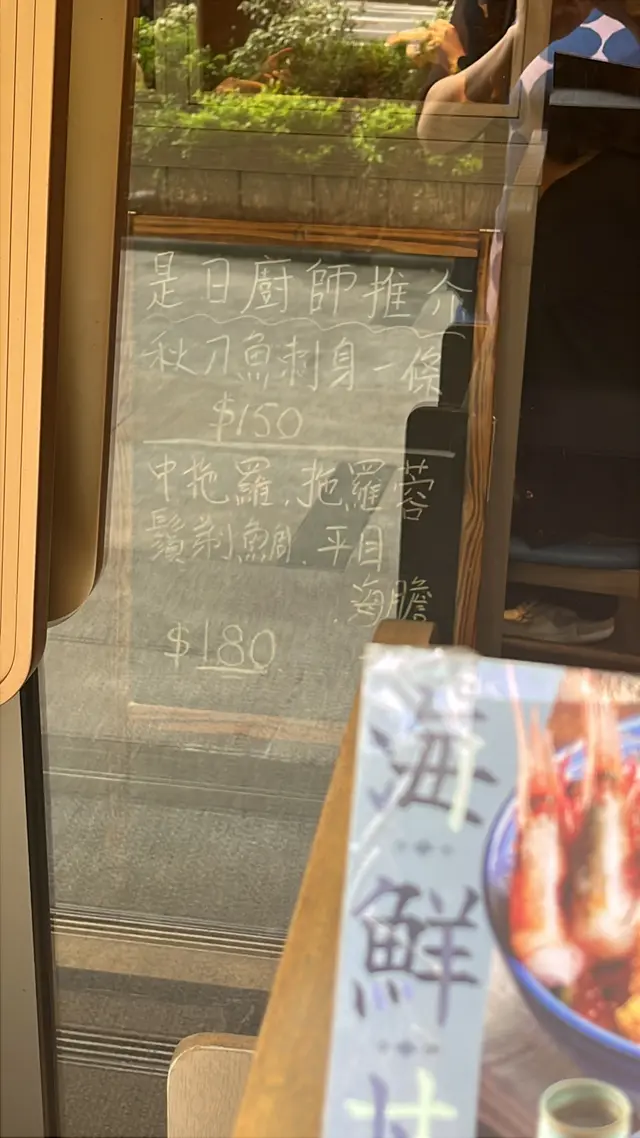 是日廚師推介
秋刀魚刺身一條
$150
中拖羅.拖羅蓉
鬚剃鯛.平目
.海膽
$180
海
鮮